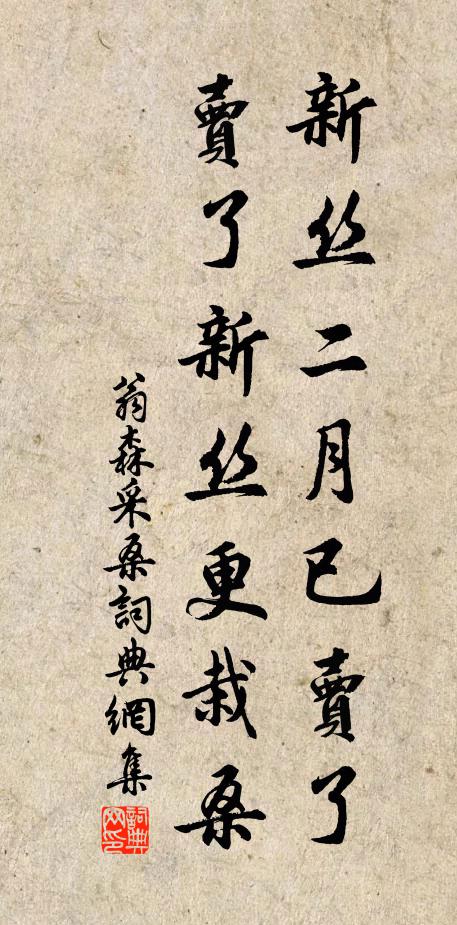 新丝二月已卖了
卖了新丝更栽桑
翁森采桑詞典網集
詞典网印